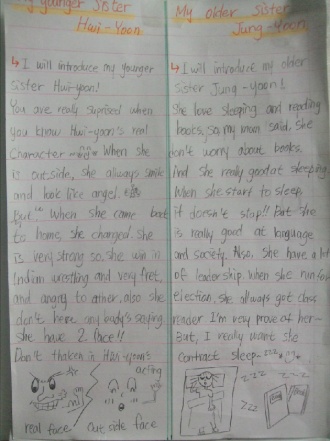 My younger Sister
Hwi-Yoon
↳ I will introduce my younger
sister Hwi-yoon!
You are really suprised when
you know Hwi-yoon's real
Character When she
is outside, she always smile
and look like angel.
But when she came back
to home, she changed. She
is very strong so she win in
Indian wrestling and very fret,
and angry to other. also she
don't here anybody's saying.
she have 2 face!!
Don't in Hwi-yoon's
real face out side face
acting
My older Sister
Jung-Yoon
↳ I will introduce my older
sister Jung-yoon!
She love sleeping and reading
books, so, my mom said, she
don't worry about books.
And she really good at sleeping
When she start to sleep
it doesn't stop!! But she
is really good at language
and society. Also, she have a lot
of leadership. when she run for
election, she always got class
reader I'm very prove of her~
But, I really want she
contract sleep~ zzz
zzz
zzz